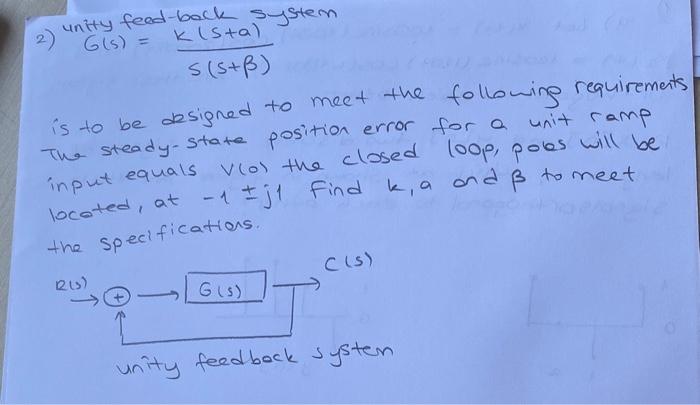 2) unity feed-back system
G(s) = K(s+a)
s(s+β)
is to be designed to meet the following requirements
The steady-state position error for a unit ramp
input equals V(0) the closed loop, poles will be
located, at -1 ± j1 Find k, a and β to meet
the specifications.
C(s)
R(s)
+
G(s)
unity feedback system